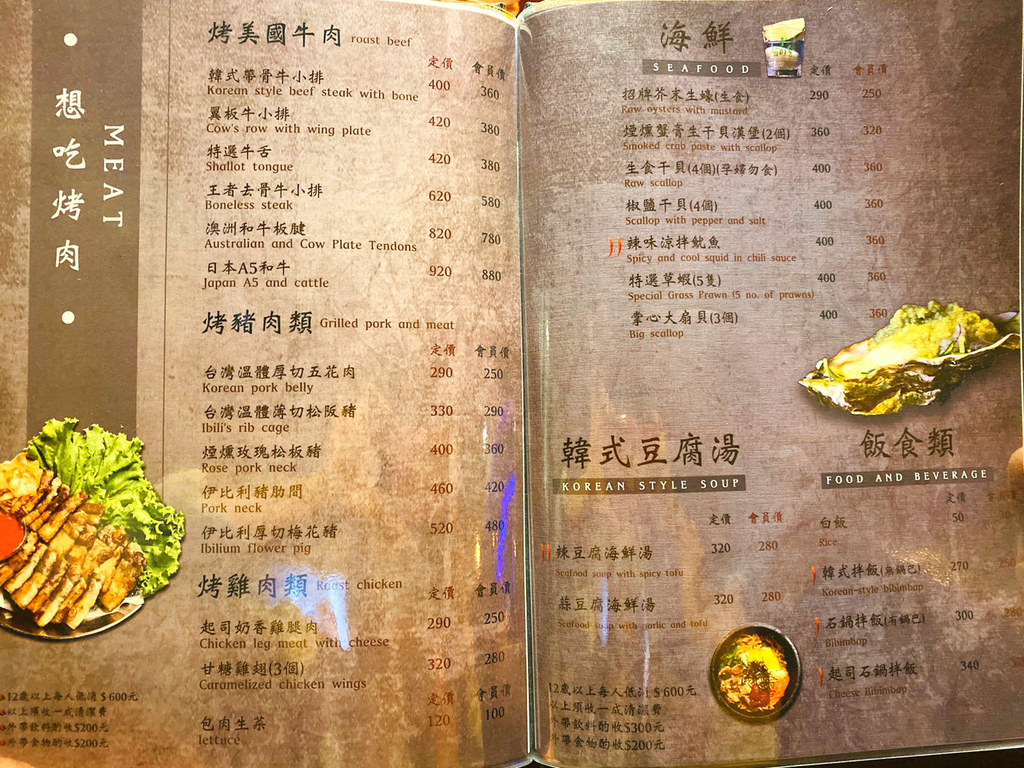 想吃烤肉
MEAT
烤美國牛肉 roast beef
定價 會員價
韓式帶骨牛小排
Korean style beef steak with bone 400 360
翼板牛小排
Cow's row with wing plate 420 380
特選牛舌
Shallot tongue 420 380
王者去骨牛小排
Boneless steak 620 580
澳洲和牛板腱
Australian and Cow Plate Tendons 820 780
日本A5和牛
Japan A5 and cattle 920 880
烤豬肉類 Grilled pork and meat
定價 會員價
台灣溫體厚切五花肉 290 250
Korean pork belly
台灣溫體薄切松阪豬 330 290
Ibili's rib cage
煙燻玫瑰松板豬 400 360
Rose pork neck
伊比利豬肋間 460 420
Pork neck
伊比利厚切梅花豬 520 480
Ibilium flower pig
烤雞肉類 Roast chicken
定價 會員價
起司奶香雞腿肉 290 250
Chicken leg meat with cheese
甘糖雞翅(3個) 320 280
Caramelized chicken wings
定價 會員價
包肉生菜 120 100
lettuce
12歲以上每人低消$600元
以上須收一成清潔費
外帶飲料酌收$200元
外帶食物酌收$200元
海鮮
SEAFOOD
定價 會員價
招牌芥末生蠔(生食) 290 250
Raw oysters with mustard
煙燻蟹膏生干貝漢堡(2個) 360 320
Smoked crab paste with scallop
生食干貝(4個)(孕婦勿食) 400 360
Raw scallop
椒鹽干貝(4個) 400 360
Scallop with pepper and salt
辣味涼拌魷魚 400 360
Spicy and cool squid in chili sauce
特選草蝦(5隻) 400 360
Special Grass Prawn (5 no. of prawns)
掌心大扇貝(3個) 400 360
Big scallop
韓式豆腐湯
KOREAN STYLE SOUP
定價 會員價
辣豆腐海鮮湯 320 280
Seafood soup with spicy tofu
蒜豆腐海鮮湯 320 280
Seafood soup with garlic and tofu
12歲以上每人低消$600元
以上須收一成清潔費
外帶飲料酌收$300元
外帶食物酌收$200元
飯食類
FOOD AND BEVERAGE
定價
白飯 50
Rice
韓式拌飯(無鍋巴) 270
Korean-style bibimbap
石鍋拌飯(有鍋巴) 300
Bibimbap
起司石鍋拌飯 340
Cheese Bibimbap